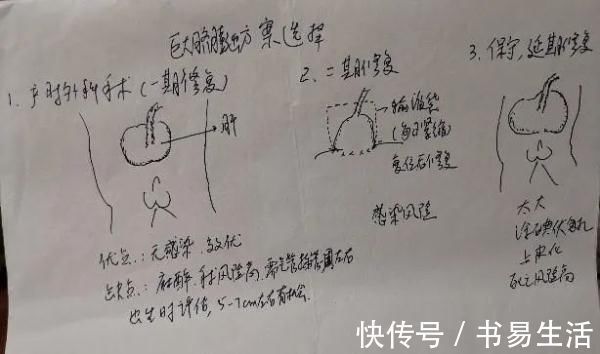 巨大脐膨出方案选择
1. 产时外科手术(一期修复)
肝
优点:无感染、改优
缺点:麻醉、手术风险高、需气管插管1周左右
出生时评估,5-7cm左右有机会.
2. 二期修复
(每日紧缩)
复位后修复
感染风险
3. 保守,延期修复
太大
涂碘伏包扎
上皮化
死亡风险高
快传号 / 书易生活